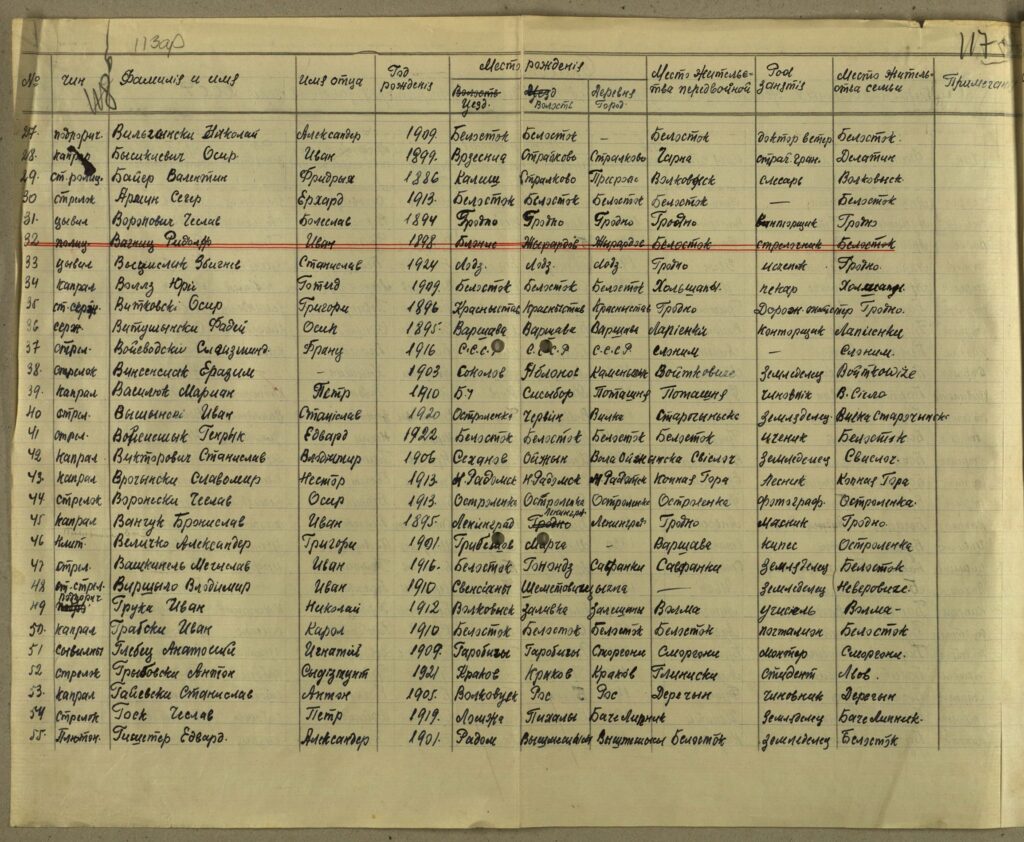 113ар
117
№ чин Фамилія и имя Имя отца Год рожденія Место рожденія Место жительства передвойной Род занятіи Место жительства семьи Примечан
118 Волость Уезд. Уезд Волость Деревня Город.
27. подпорич. Вильчински Николай Александер 1909. Белосток Белосток – Белосток доктор ветер. Белосток.
28. капрал Бышкиевич Осир Иван 1899. Врзесниа Стралково Стралково Чарна страй. гран. Делатин
29. ст. Байер Валентин Фридрых 1886 Калиш Стралково Волковыск слесарь Волковыск
30 стрелок Аршин Север Ерхард 1913. Белосток Белосток Белосток Белосток — Белосток
31. цывил Воропович Чеслав Болеслав 1894 Гродно Гродно Гродно Гродно Гродно
32 полиц. Вагниц Рудольф Иван 1898 Блоние Жырардов Жырардов Белосток стрелочник Белосток
33 цывил Высмыслик Збигнев Станислав 1924 Лодз. Лодз. Лодз. Гродно ученик Гродно.
34 капрал Воллз Юри Готфид 1909 Белосток Белосток Белосток Хольшаны пекар Холшаны
35 ст. серж. Витковскі Осир Григори 1896 Красныстав Красныстав Красныстав Гродно Гродно.
36 серж. Витушынски Фадей Осип 1895. Варшава Варшава Варшава Лапіенки конторщик Лапіенки
37 стрел. Войеводскі Франц 1916 С.С.С.Р С.С.С.Р С.С.С.Р Слоним — Слоним.
38. стрелок Винсенсиак Еразим – 1903 Соколов Яблонов Войтковіже Земледелец Войтковіже
39. капрал Василюк Мариан Петр 1910 Поташня Поташня чиновник В. Сіело
40 стрел. Вышынскі Иван Станіслав 1920 Остроленкі Червін Вилка Старочыньска Земледелец Вилка Старочынск
41 стрел. Генрык Едвард 1922 Белосток Белосток Белосток Белосток ученик Белосток
42 капрал Викторович Станислав Владжимир 1906 Сеханов Ойжын Свіслоч Земледелец Свислоч.
43. капрал Врочыньски Славомир Нестор 1913. Н. Радомск Н. Радомск Н. Радомск Конная Гора Лесник Конная Гора
44. стрелок Воронески Чеслав Осир 1913. Остроленка Остроленка Остроленка Остроленка фотограф. Остроленка.
45 капрал Ванчук Бронислав Иван 1895. Ленинград Гродно Ленинград. Ленинград Гродно Масник Гродно.
46 Величко Александер Григори 1901. Марча – Варшава купес Остроленка
47 стрел. Вашкинель Мечислав Иван 1916. Белосток Гониондз Сафанки Сафанки Земледелец Белосток
48 ст. стрел. Виршыло Влодимар Иван 1910 Свенсіаны — Земледелец Неверовиче.
49 подпорич Грука Иван Николай 1912 Волковыск Заливка Волма учитель Волма–
50. капрал Грабски Иван Карол 1910 Белосток Белосток Белосток Белосток почталион Белосток
51 сывилны Глебец Анатолий Игнатий 1909. Таробичы Таробичы Сморгони Сморгони монтер Сморгони.
52 стрелок Грыбовски Антон 1921 Краков Краков Краків Глиниски студент Лвов.
53. капрал Гаіевски Станислав Антон 1905. Волковуск Рос Рос Деречын чиновник Деречын
54 стрелок Госк Чеслав Петр 1919. Ломжа Пихалы Баче Липник Земледелец Баче Липник.
55. Плютон. Гиштер Едвард. Александер 1901. Радом Белосток Земледелец Белосток